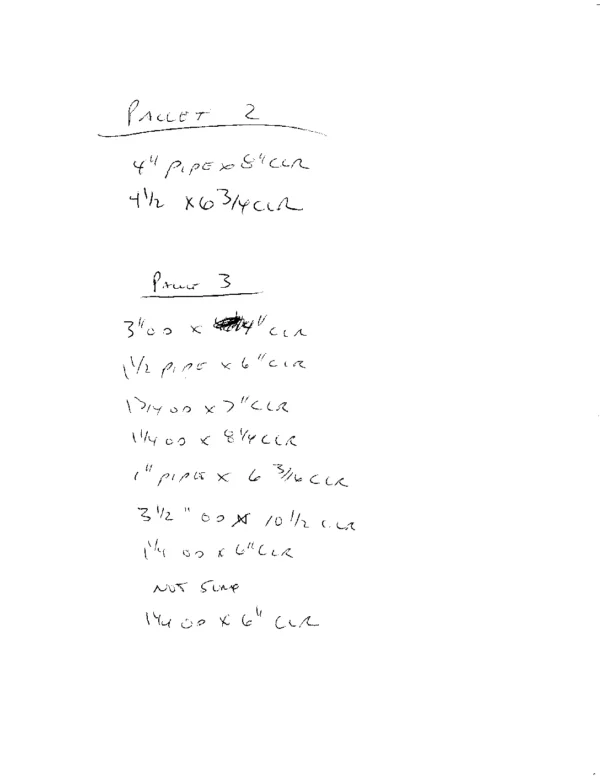 PALLET 2
4" PIPE x 8" CLR
4 1/2 x 6 3/4 CLR
PALLET 3
3" OD x 4" CLR
1 1/2 PIPE x 6" CLR
1 3/4 OD x 7" CLR
1 1/4 OD x 8 1/4 CLR
1" PIPE x 6 3/16 CLR
3 1/2" OD x 10 1/2 CLR
1 1/4 OD x 6" CLR
NOT SURE
1 1/4 OD x 6" CLR